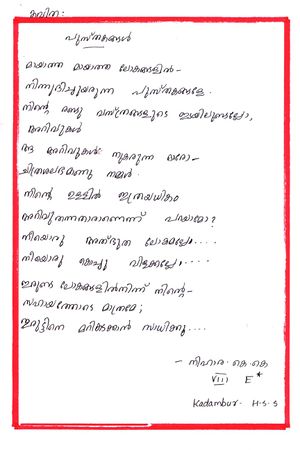 കവിത:
പുസ്തകങ്ങൾ
മായാത്ത മായാത്ത ലോകങ്ങളിൽ-
നിന്നുദിച്ചുയരുന്ന പുസ്തകങ്ങളേ.
നിന്റെ രണ്ടു വസ്ത്രങ്ങളുടെ ഇടയിലുണ്ടല്ലോ,
അറിവുകൾ
ആ അറിവുകൾ നുകരുന്ന ഓരോ-
ചിത്രശലഭമാണു നമ്മൾ.
നിന്റെ ഉള്ളിൽ ഇത്രയധികം
അറിവുതന്നതാരാണെന്ന് പറയാമോ?
നീയൊരു അത്ഭുത ലോകമല്ലോ....
നീയൊരു കൊച്ചു വിളക്കല്ലോ....
ഇരുണ്ട ലോകങ്ങളിൽനിന്ന് നിന്റെ-
സഹായത്തോടെ മാത്രമേ;
ഇരുട്ടിനെ മറികടക്കാൻ സാധിക്കൂ....
- നിഹാര. കെ. കെ
VIII E*
Kadambur. H.S.S